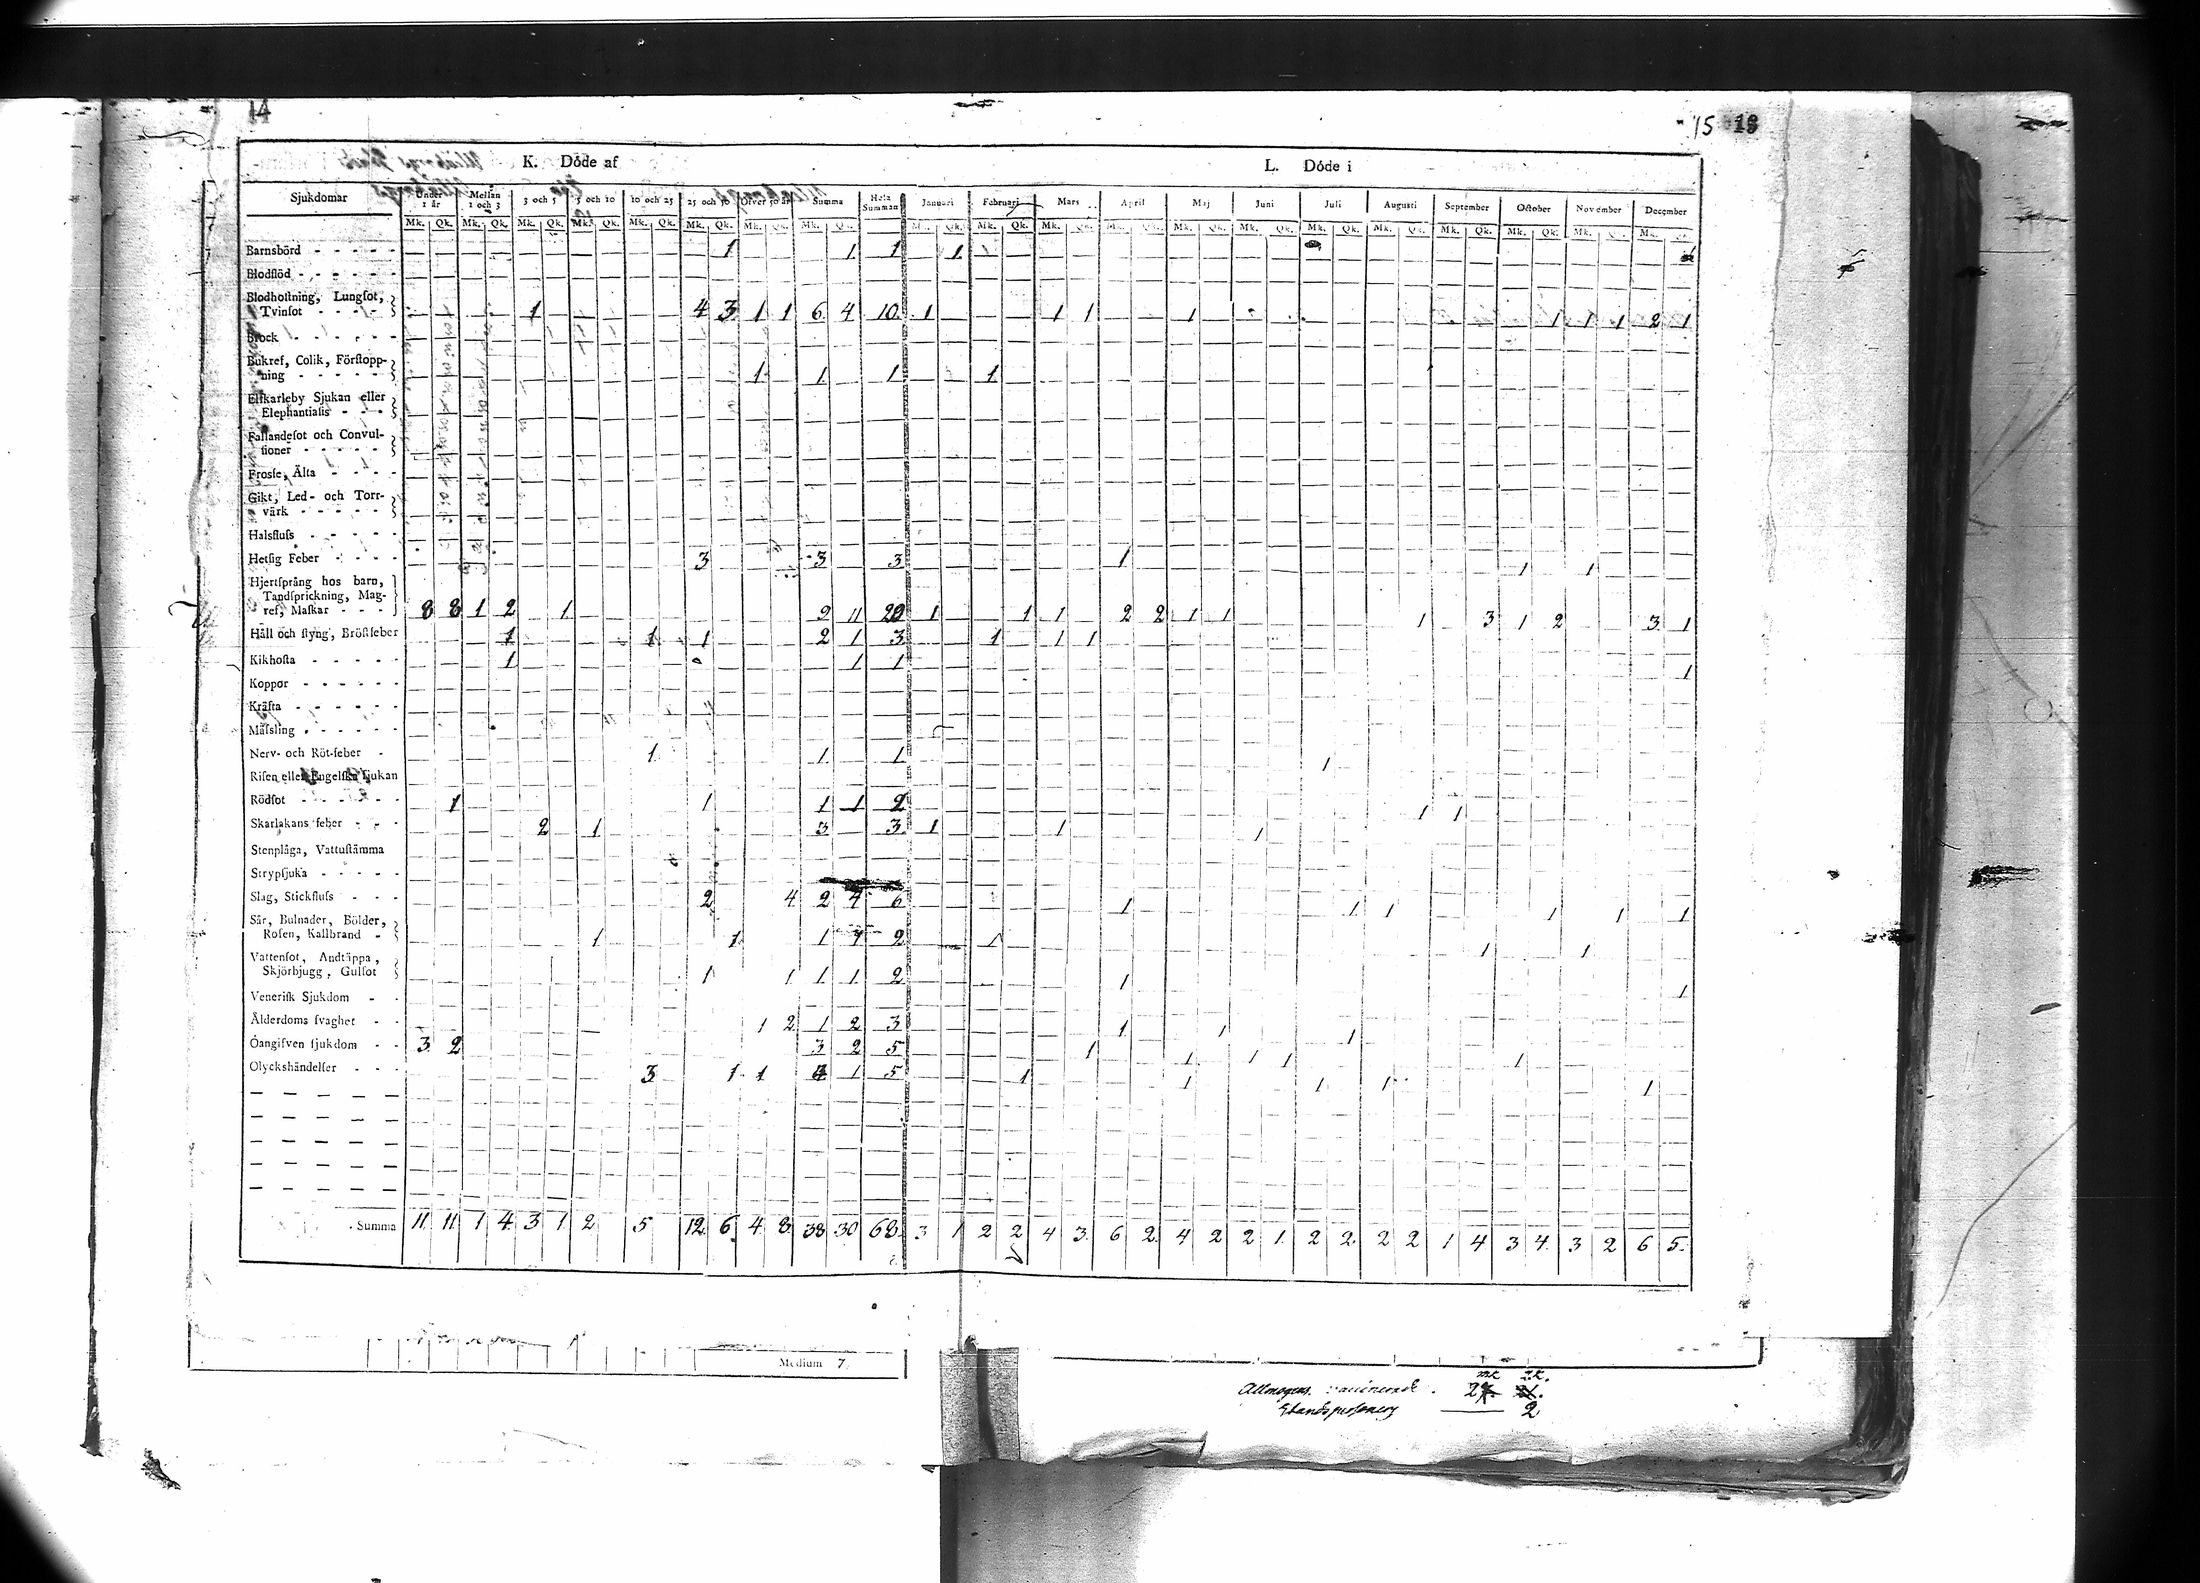 14
15 16
K. Döde af L. Döde i
Sjukdomar Under 1 år Mellan 1 och 3 3 och 5 5 och 10 10 och 25 25 och 50 Öfver 50 år Summa Hela Summan Januari Februari Mars April Maj Juni Juli Augusti September October November December
Mk. Qk. Mk. Qk. Mk. Qk. Mk. Qk. Mk. Qk. Mk. Qk. Mk. Qk. Mk. Qk. Mk. Qk. Mk. Qk. Mk. Qk. Mk. Qk. Mk. Qk. Mk. Qk. Mk. Qk. Mk. Qk. Mk. Qk. Mk. Qk. Mk.
Barnsbörd 1 1 1 1
Blodflöd
Blodhoſtning, Lungſot,
Tvinſot 1 4 3 1 1 6 4 10 1 1 1 1 1 1 1 2 1
Brock
Bukref, Colik, Förſtopp-
ning 1 1 1 1
Elfkarleby Sjukan eller
Elephantiaſis
Fallandeſot och Convul-
ſioner
Frosſe, Älta
Gikt, Led- och Torr-
värk
Halsfluſs
Hetſig Feber 3 3 3 1 1 1
Hjertſprång hos barn,
Tandſprickning, Mag-
ref, Maſkar 8 8 1 2 1 9 11 20 1 1 1 2 2 1 1 1 3 1 2 3 1
Håll och ſtyng, Bröſtfeber 1 1 1 2 1 3 1 1 1
Kikhoſta 1 1 1 1
Koppor
Kräfta
Mäſsling
Nerv- och Röt-feber 1 1 1 1
Riſen eller Engelſka Sjukan
Rödſot 1 1 1 1 2 1 1
Skarlakans feber 2 1 3 3 1 1 1
Stenplåga, Vattuſtämma
Strypſjuka
Slag, Stickfluſs 2 4 2 4 6 1 1 1 1 1 1
Sår, Bulnader, Bölder,
Roſen, Kallbrand 1 1 1 1 2 1 1
Vattenſot, Andtäppa,
Skjörbjugg, Gulſot 1 1 1 1 2 1 1
Veneriſk Sjukdom
Ålderdoms ſvaghet 1 2 1 2 3 1 1 1
Oangifven ſjukdom 3 2 3 2 5 1 1 1 1 1
Olyckshändelſer 3 1 1 4 1 5 1 1 1 1 1
Summa 11 11 1 4 3 1 2 5 12 6 4 8 38 30 68 3 1 2 2 4 3 6 2 4 2 2 1 2 2 2 2 1 4 3 4 3 2 6 5
Medium 7.
mk qk.
Allmogens vaccinerade
Ståndspersoner 2